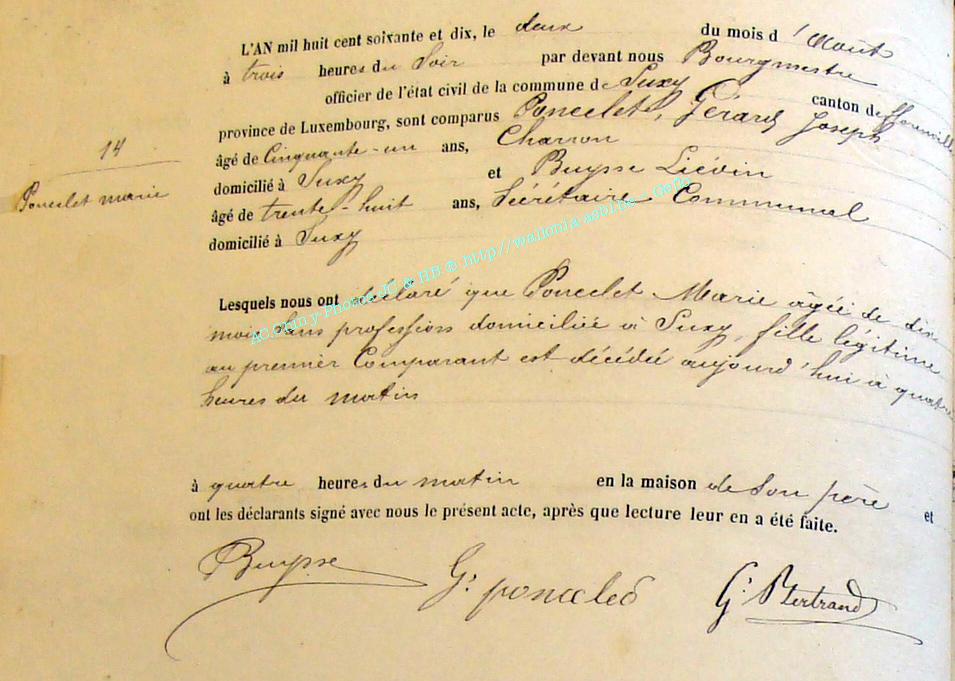 L'AN mil huit cent soixante et dix, le deux du mois d'Août
à trois heures du Soir par devant nous Bourgmestre
officier de l'état civil de la commune de Suxy canton de
province de Luxembourg, sont comparus Poncelet, Gérard Joseph
âgé de Cinquante-un ans, Charron
domicilié à Suxy et Buysse Liévin
âgé de trente-huit ans, Sécrétaire Communal
domicilié à Suxy
14
Poncelet marie
Lesquels nous ont déclaré que Poncelet Marie âgée de dix
mois sans profession domiciliée à Suxy, fille légitime
au premier Comparant est décédée aujourd'hui à quatre
heures du matin
à quatre heures du matin en la maison de son père et
ont les déclarants signé avec nous le présent acte, après que lecture leur en a été faite.
Buysse
G. poncelet
G. Bertrand
JC & HB ® http://wallonia.